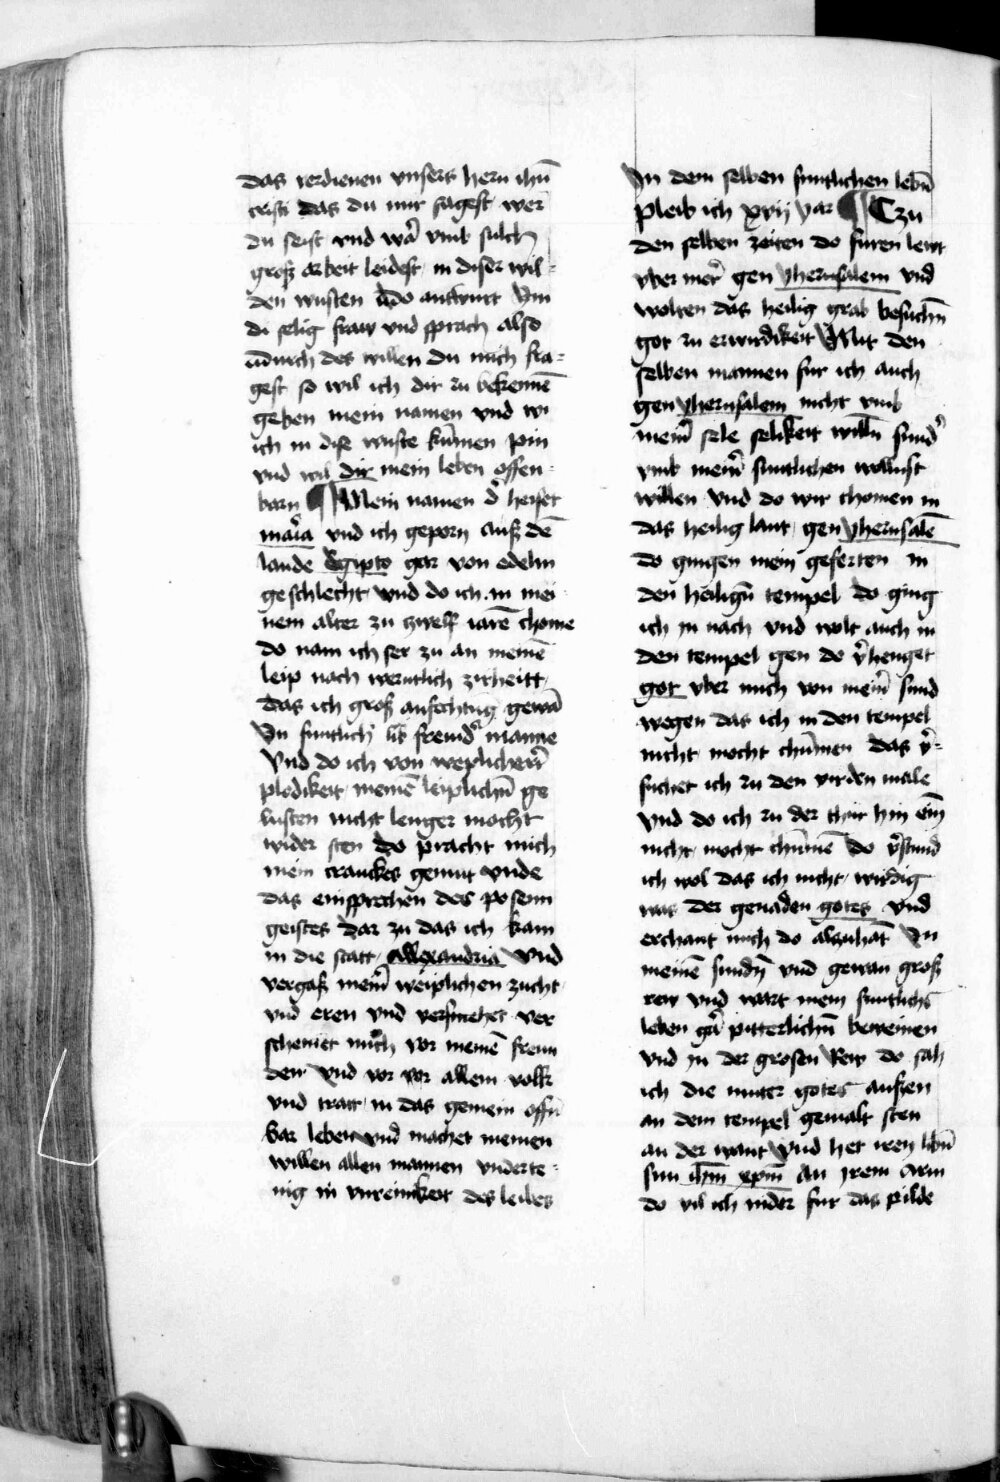 das verdienen vnsers hern ihū
cristi das du mir sagest wer
du seist vnd wā vmb sulch
groß arbeit leidest in diser wil-
den wusten Do antwurt Ym
di selig fraw vnd sprach also
durch des willen du mich fra=
gest so wil ich dir zu bekennē
geben mein namen vnd wi
ich in dise wuste kūmen pin
vnd wil dir mein leben offen-
barn ¶ Mein namen d̉ heiset
mar̉ia vnd ich geporn auß dē
lande Egipto gar von edelm
geschlecht vnd do ich in mei
nem alter zu zwelf iarē chome
do nam ich ser zu an meinē
leip nach werntlich zirheitt
das ich groß anfechtūg gewā
Yn suntlich̉ lib fremd̉ manne
Vnd do ich von weplicher̉
plodikeit meinē leiplichn̄ ge
lusten nicht lenger mocht
wider sten do pracht mich
mein cranckes gemut vnde
das einsprechen des posenn
geistes dar zu das ich kam
in die statt Allexandria Vnd
vergaß mein̉ weiplichen zucht
vnd eren vnd versmehet ver
schemet mich vor meinē freun
den vnd vor vor allem volk
vnd tratt in das gemein offn̄
bar leben vnd machet meinen
willen allen mannen vnderte-
nig in vnreinikeit des leibes
Yn dem selben suntlichen lebn̄
pleib ich xvij Yar ¶ Czu
den selben zeiten do furen lewt
vber mer̉ gen yherusalem vnd
wolten das heilig grab besuchn̄
got zu erwirdikeit Mit den
selben mannen fur ich auch
gen yherusalem nicht vmb
mein̉ sele selikeit willn̄ sund̉
vmb mein̉ suntlichen wollust
willen vnd do wir chomen in
das heilig lant gen yherusalē
do gingen mein geferten in
den heilign̄ tempel do ging
ich in nach vnd wolt auch in
den tempel gen do v̉henget
got vber mich von mein̉ sund
wegen das ich in den tempel
nicht mocht chūmen das v̉-
suchet ich zu den virden male
vnd do ich zu der thur hin ein
nicht mocht chūmē do v̉stund
ich wol das ich nicht wirdig
was der genaden gotes vnd
erchant mich do alzuhāt Yn
meinē sundn̄ vnd gewan groß
rew vnd wart mein suntlichs
leben gar̉ pitterlichn̄ beweinen
vnd in der grosen Rew do sah
ich die muter gotes aussen
an dem tempel gemalt sten
an der want vnd het iren libn̄
sun ihm̄ xpm̄ an irem arm
do vil ich nider fur das pilde